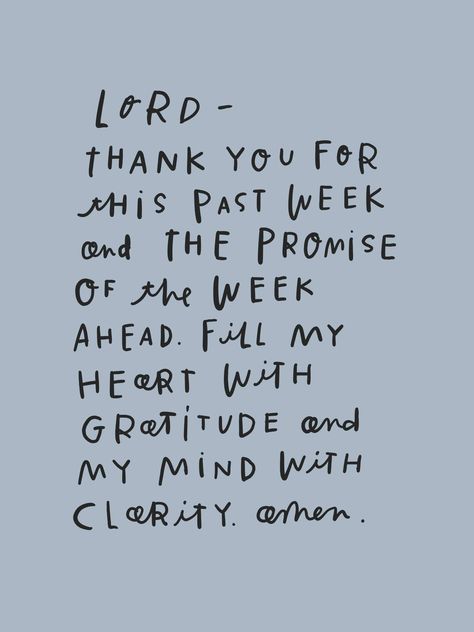 LORD -
THANK YOU FOR
tHiS PAST WEEK
and THE PROMiSE
OF the WEEK
AHEAD. Fill MY
HEaRT WitH
GRatiTUDE and
MY MIND WitH
CLaRiTY. amen.